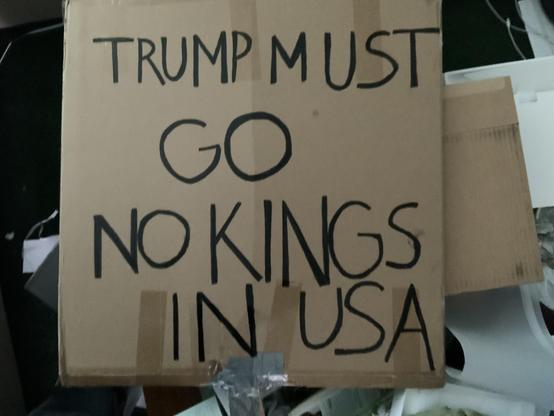 TRUMP MUST
GO
NO KINGS
IN USA